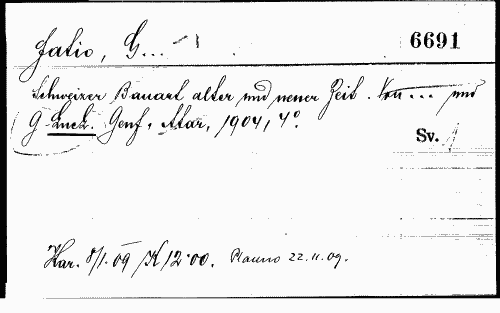 Fatio, G...
6691
Schweizer Bauart alter und neuer Zeit. Von ... und
G. Luck. Genf, Atar, 1904, 4°.
Sv.
Har. 8/1.09 /K 12.00. 22.11.09.